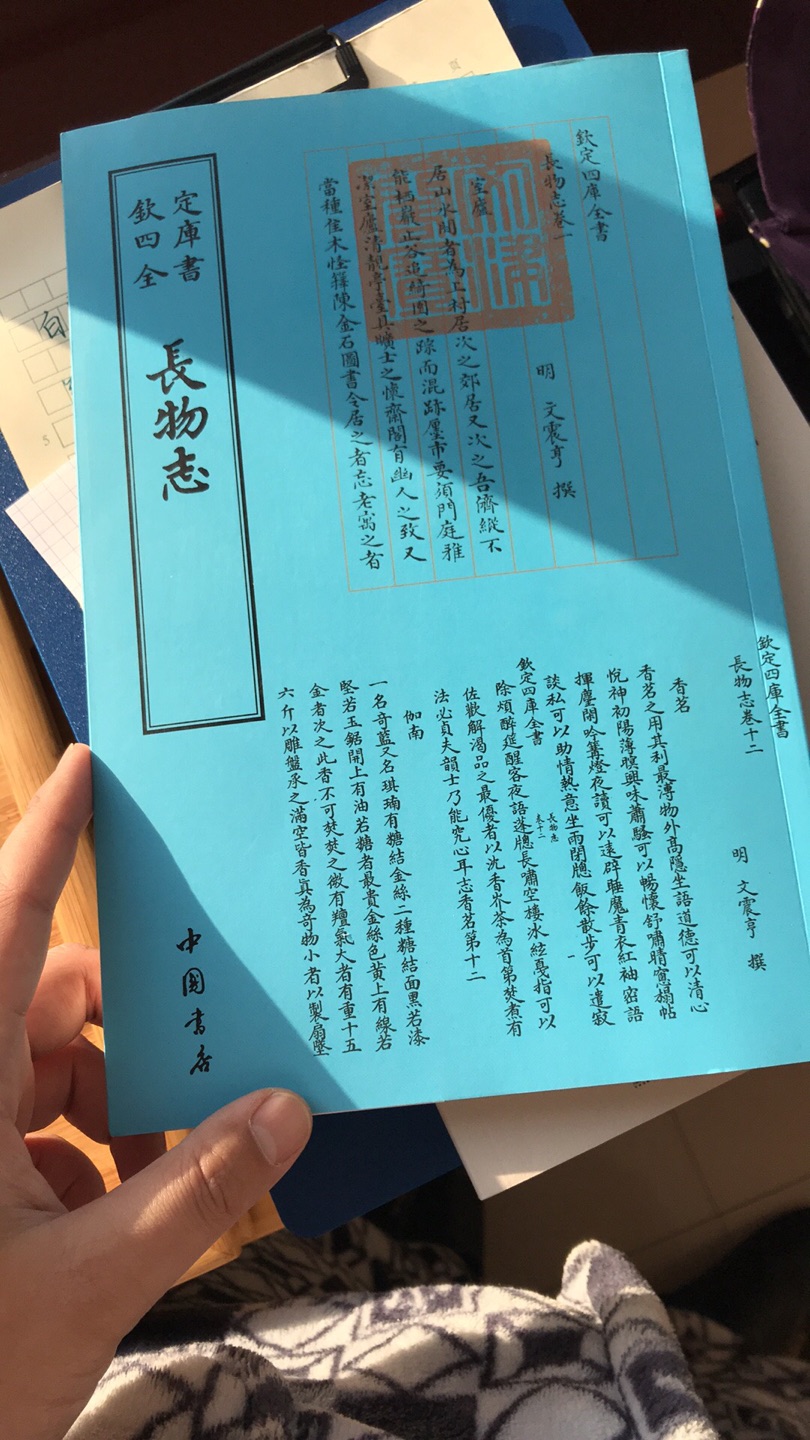 欽定
四庫
全書
長物志
中國書店
欽定四庫全書
長物志卷一
明 文震亨 撰
室廬
居山水間者為上村居次之郊居又次之吾儕縱不
能栖巖止谷追綺園之踪而混跡廛市要須門庭雅
潔室廬清靚亭臺具曠士之懷齋閣有幽人之致又
當種佳木怪籜陳金石圖書令居之者忘老寓之者
欽定四庫全書
長物志卷十二
明 文震亨 撰
香茗
香茗之用其利最溥物外高隱坐語道德可以清心
悅神初陽薄暝興味蕭騷可以暢懷舒嘯晴窻搨帖
揮麈閒吟篝燈夜讀可以遠辟睡魔青衣紅袖密語
談私可以助情熱意坐雨閉牕飯餘散步可以遣寂
欽定四庫全書
長物志
卷十二
除煩醉筵醒客夜語蓬牕長嘯空樓冰絃戛指可以
佐歡解渴品之最優者以沈香岕茶為首第焚煮有
法必貞夫韻士乃能究心耳志香茗第十二
伽南
一名奇藍又名琪㻞有糖結金絲二種糖結面黑若漆
堅若玉鋸開上有油若糖者最貴金絲色黃上有線若
金者次之此香不可焚焚之微有羶氣大者有重十五
六斤以雕盤承之滿室皆香真為奇物小者以製扇墜